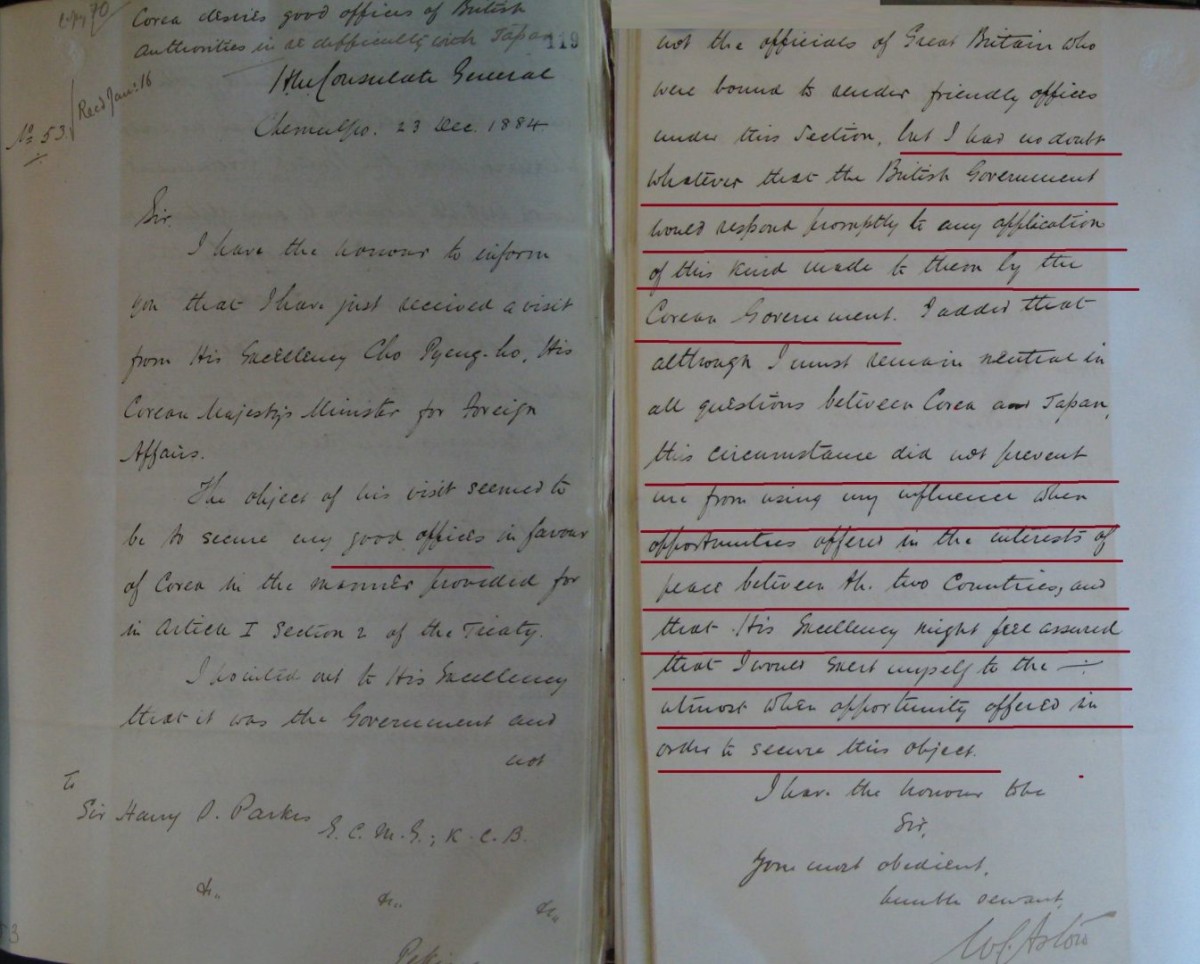 Copy 70
Corea desires good offices of British
authorities in re difficulty with Japan
119
H.M. Consulate General
Recd Jan: 16
No 53.
Chemulpo. 23 Dec. 1884
Sir.
I have the honour to inform
you that I have just received a visit
from His Excellency Cho Pyeng-ho, His
Corean Majesty's Minister for Foreign
Affairs.
The object of his visit seemed to
be to secure my good offices in favour
of Corea in the manner provided for
in Article I Section 2 of the Treaty.
I pointed out to His Excellency
that it was the Government and
not
To
Sir Harry S. Parkes
G.C.M.G.; K.C.B.
&c. &c. &c.
53
Peki
not the officials of Great Britain who
were bound to render friendly offices
under this Section, but I had no doubt
whatever that the British Government
would respond promptly to any application
of this kind made to them by the
Corean Government. I added that
although I must remain neutral in
all questions between Corea and Japan,
this circumstance did not prevent
me from using my influence when
opportunities offered in the interests of
peace between the two Countries, and
that His Excellency might feel assured
that I would exert myself to the
utmost when opportunity offered in
order to secure this object.
I have the honour to be
Sir,
Your most obedient,
humble servant,
W.G. Aston